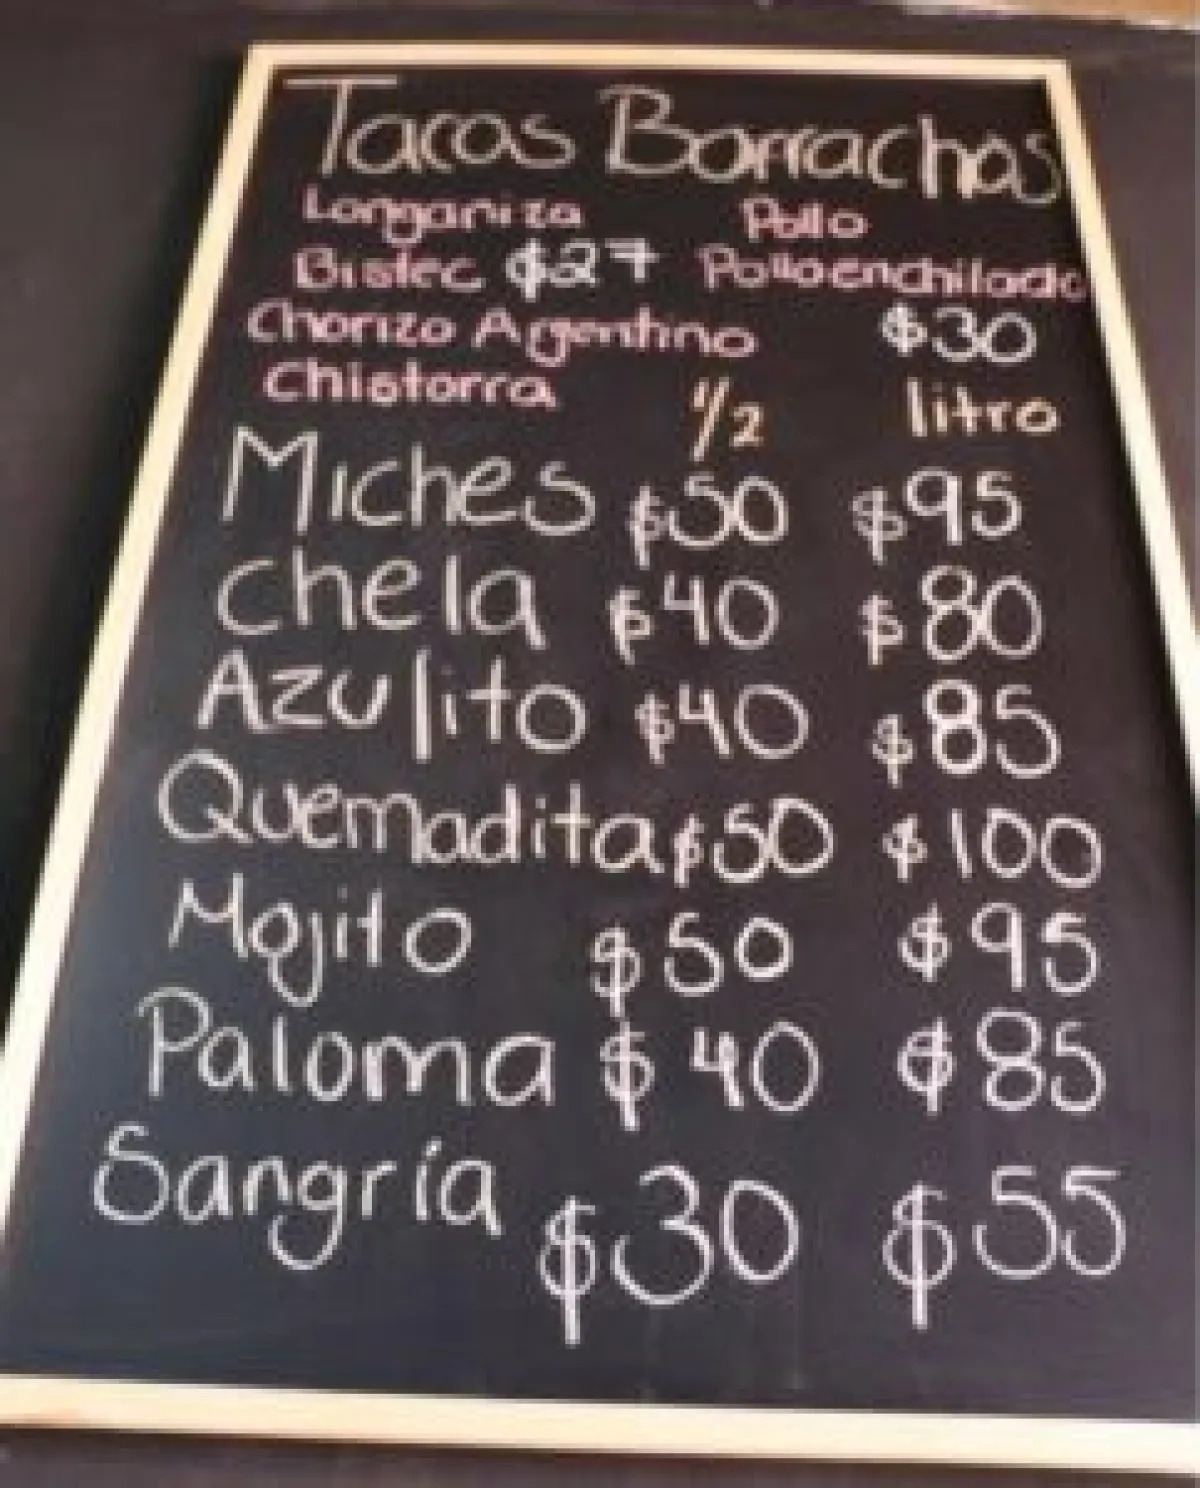 Tacos Borrachos
Longaniza Pollo
Bistec $27 Pollo enchilado
Chorizo Argentino $30
Chistorra 1/2 litro
Miches $50 $95
Chela $40 $80
Azulito $40 $85
Quemadita $50 $100
Mojito $50 $95
Paloma $40 $85
Sangría $30 $55